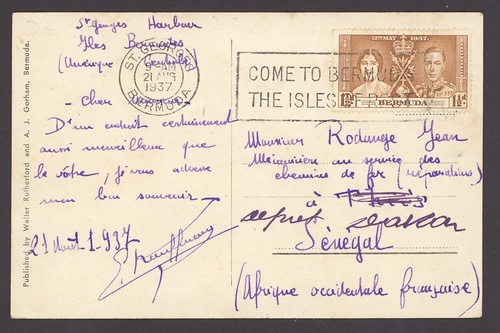 St Georges Harbour
Iles Bermudes
(Amérique Centrale)
- Cher
D'un endroit certainement
aussi merveilleux que
le vôtre, je vous adresse
mon bon souvenir -
21 Août 1.937
ST. GEORGES
9-AM
21 AUG
1937
BERMUDA
COME TO BERMUDA
THE ISLES
12TH MAY 1937.
1½d
BERMUDA
1½d
Monsieur Rodange Jean
Mécanicien au service des
chemins de fer (réparations)
à Thiès
depot Dakar
Sénégal
(Afrique occidentale française)
Published by Walter Rutherford and A. J. Gorham, Bermuda.